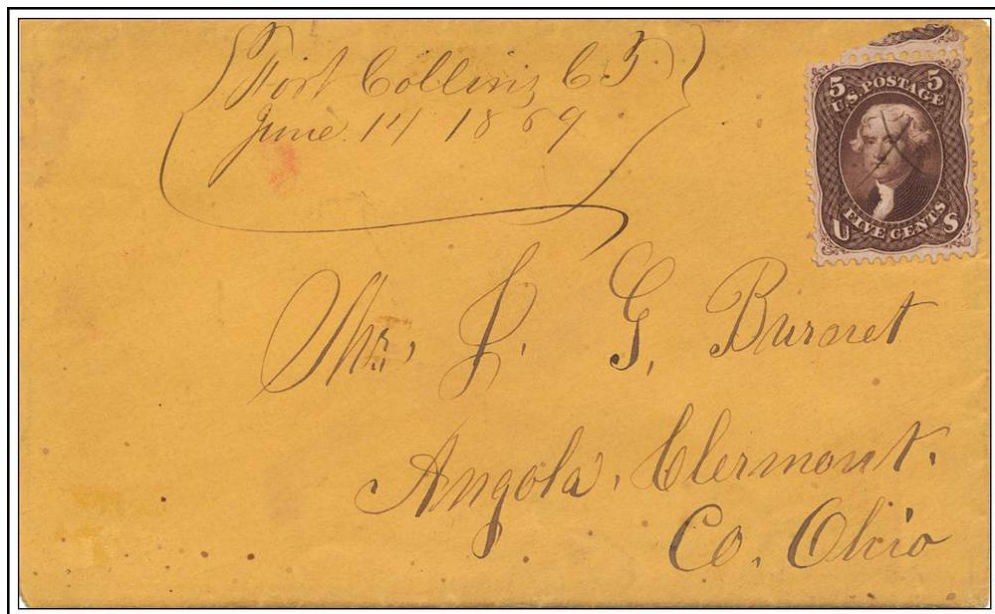 Fort Collins C. T.
June 14 1869
5 5
U.S. POSTAGE
FIVE CENTS
U S
Mr. J. G. Burnet
Angola, Clermont.
Co. Ohio